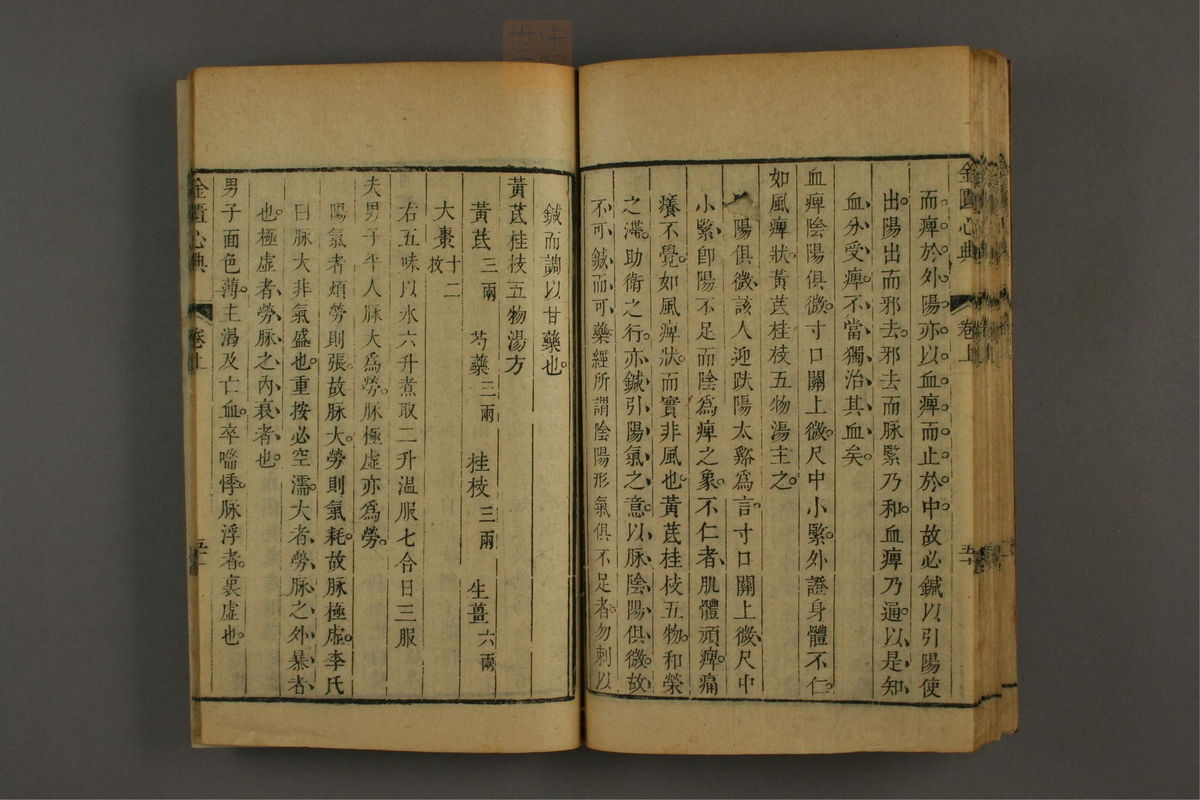 金匱心典 卷上 五十
而痺於外陽亦以血痺而止於中故必鍼以引陽使
出陽出而邪去邪去而脉緊乃和血痺乃通以是知
血分受痺不當獨治其血矣
血痺陰陽俱微寸口關上微尺中小緊外證身體不仁
如風痺狀黃芪桂枝五物湯主之
陽俱微該人迎趺陽太谿爲言寸口關上微尺中
小緊卽陽不足而陰爲痺之象不仁者肌體頑痺痛
癢不覺如風痺狀而實非風也黃芪桂枝五物和榮
之滯助衛之行亦鍼引陽氣之意以脉陰陽俱微故
不可鍼而可藥經所謂陰陽形氣俱不足者勿刺以
鍼而調以甘藥也
黃芪桂枝五物湯方
黃芪三兩 芍藥三兩 桂枝三兩 生薑六兩
大棗十二枚
右五味以水六升煮取二升溫服七合日三服
夫男子平人脉大爲勞脉極虛亦爲勞
陽氣者煩勞則張故脉大勞則氣耗故脉極虛李氏
曰脉大非氣盛也重按必空濡大者勞脉之外暴者
也極虛者勞脉之內衰者也
男子面色薄主渴及亡血卒喘悸脉浮者裏虛也
金匱心典 卷上